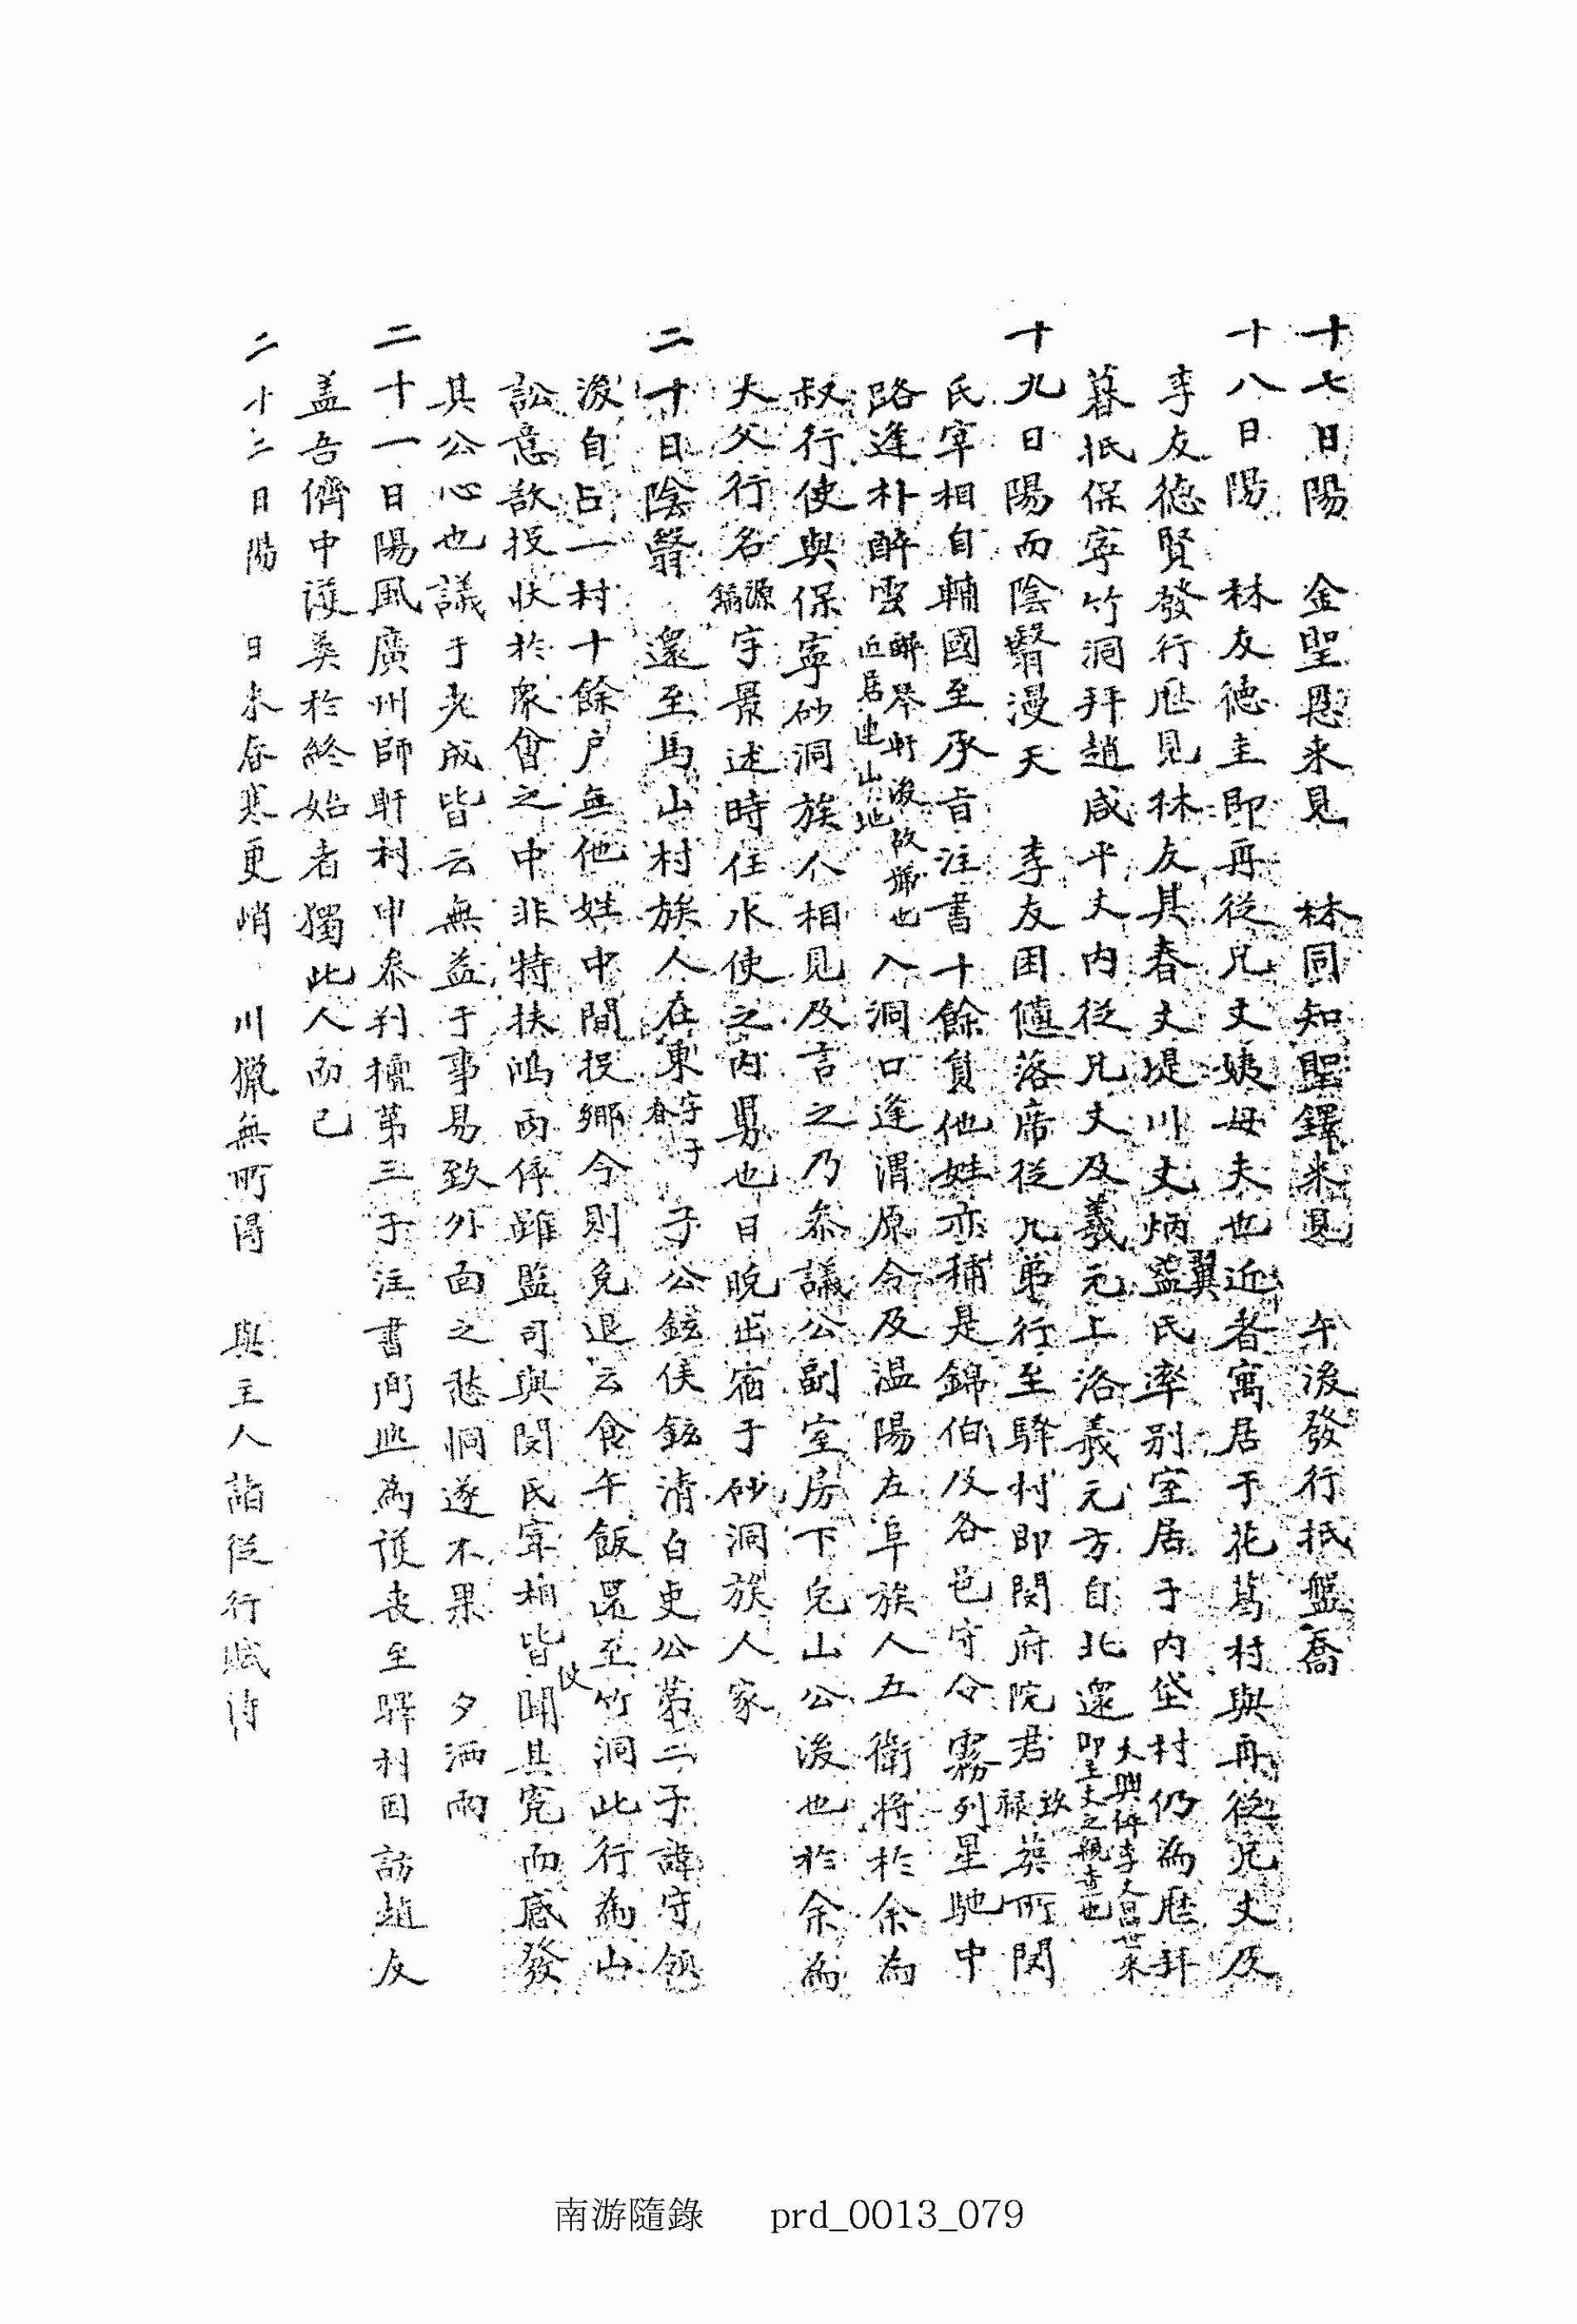 十七日陽 金聖恩来見 林同知聖鐸来見 午後發行抵盤喬
十八日陽 林友德圭即再從兄丈姨母夫也近者寓居于花葛村與再從兄丈及
李友德賢發行歷見林友其春丈堤川丈炳翼益氏率别室居于内垈村仍為歷拜
暮抵保寧竹洞拜趙咸平丈内從兄丈及羲元上洛羲元方自北還大興倅李人昌世来即主丈之親査也
十九日陽而陰翳漫天 李友困憊落席從兄弟行至驛村即閔府院君致祿葬所閔
氏宰相自輔國至承旨注書十餘員他姓亦稱是錦伯及各邑守令霧列星馳中
路逢朴醉雲醉琴軒後故號也近居連山地入洞口逢渭原令及温陽左阜族人五衛将於余為
叔行使與保寧砂洞族人相見及言之乃叅議公副室房下兔山公後也於余為
大父行名源鎬字景述時任水使之内男也日晩出宿于砂洞族人家
二十日陰翳 還至馬山村族人在東字子春子公鉉侯鉉清白吏公第二子諱守領
後自占一村十餘户無他姓中間投鄉今則免退云食午飯還至竹洞此行為山
訟意欲投状於衆會之中非特扶鴻兩倅雖監司與閔氏宰相皆使聞其寃而感發
其公心也議于老成皆云無益于事易致外面之愁恫遂不果 夕洒雨
二十一日陽風廣州師軒利申叅判檍第三子注書両熙為護丧至驛利因訪趙友
盖吾儕中護葬於終始者獨此人而已
二十二日陽 日来春寒更峭 川獵無所得 與主人諸從行賦詩
南游隨錄 prd_0013_079